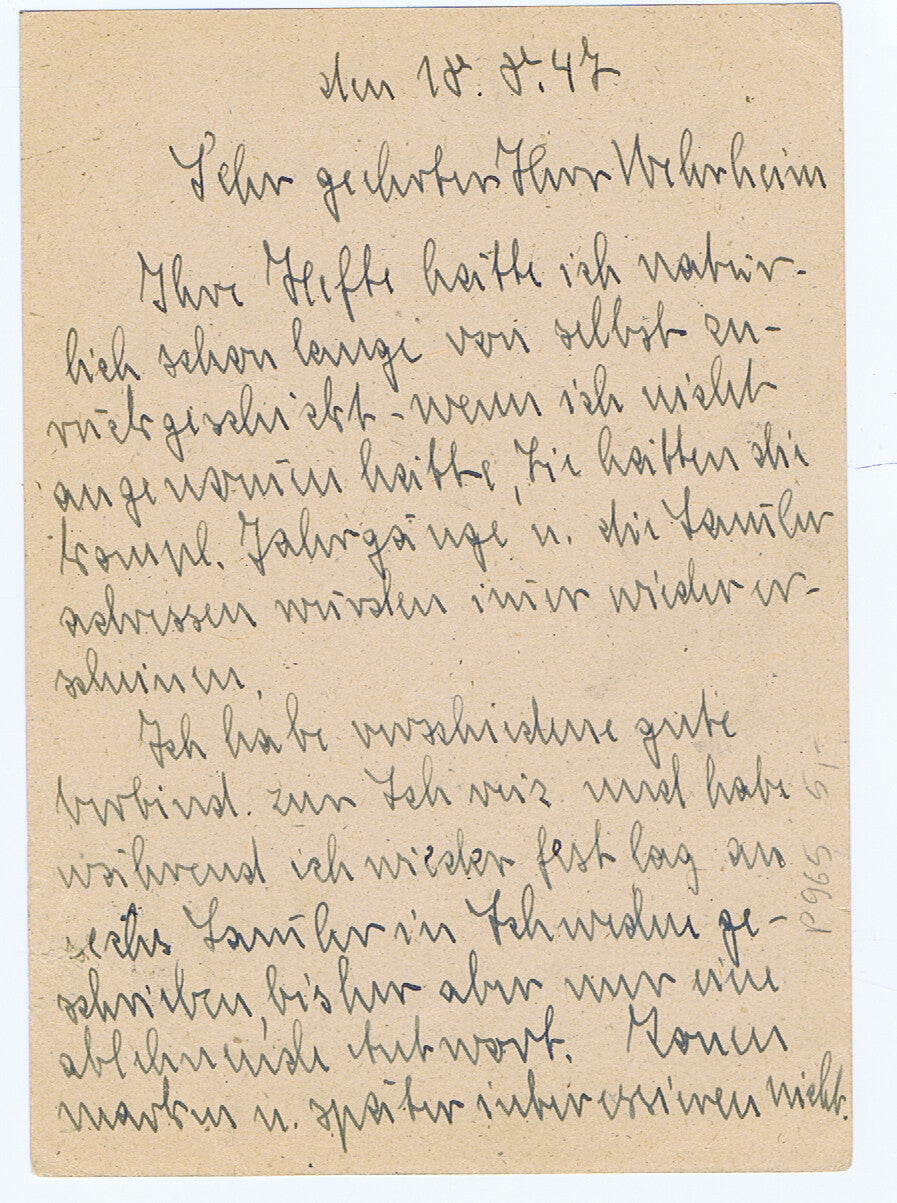 den 18. 8. 47
Sehr geehrter Herr Wehrheim
Ihre Hefte hätte ich natür-
lich schon lange von selbst zu-
rückgeschickt - wenn ich nicht
angenom̄en hätte, Sie hätten die
kompl. Jahrgänge u. die Sam̄ler
adressen würden im̄er wieder er-
scheinen.
Ich habe verschiedene gute
Verbind. zur Schweiz und habe
während ich wieder fest lag an
sechs Sam̄ler in Schweden ge-
schrieben, bisher aber nur eine
ablehnende Antwort. Zonen
marken u. später interessieren nicht.
P965 5,-